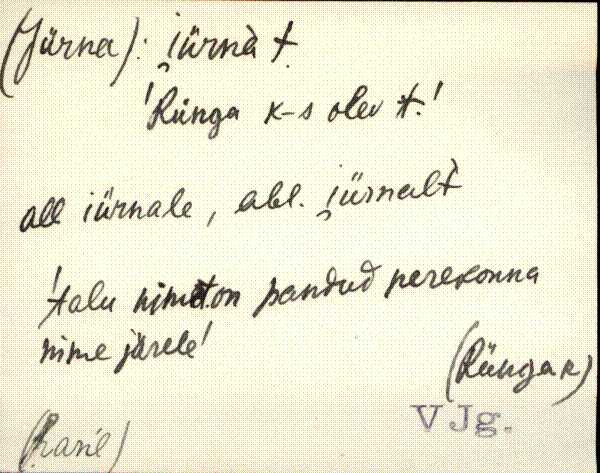 (Jürna): i̮ürnà t.
'Rünga k-s olev t.'
all iürnale, abl. i̮ürnalt̀
'talu nimi on pandud perekonna
nime järele'
(Rüngak)
VJg.